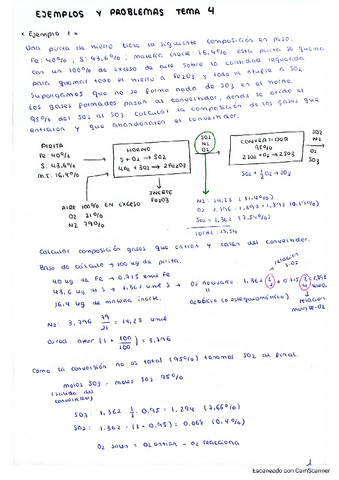 EJEMPLOS Y PROBLEMAS TEMA 4
* Ejemplo 1 *
Una pirita de hierro tiene la siguiente composición en peso:
Fe: 40%, S: 43,6%; materia inerte: 16,4%. Esta pirita se quema
con un 100% de exceso de aire sobre la cantidad requerida
para quemar todo el hierro a Fe2O3 y todo el azufre a SO2.
Supongamos que no se forma nada de SO3 en el horno.
Los gases formados pasan al convertidor, donde se oxida el
95% del SO2 al SO3. Calcular la composición de los gases que
entran y que abandonaron el convertidor.
PIRITA
Fe: 40%
S: 43,6%
m.I: 16,4%
HORNO
S + O2 → SO2
4Fe + 3O2 → 2Fe2O3
SO2
N2
O2
CONVERTIDOR
95%
2SO2 + O2 → 2SO3
SO2 + 1/2 O2 → SO3
SO2
N2
O2
SO3
AIRE 100% EN EXCESO
O2 21%
N2 79%
INERTE
Fe2O3
N2: 14,28
SO2 = 1,362
TOTAL:
Calcular composición gases que entran y salen del convertidor.
Base de cálculo → 100 kg de pirita.
40 kg de Fe → 0,715 kmol Fe
43,6 kg de S → 1,362 kmol S → O2 necesario: 1,362
16,4 kg de materia inerte.
relación
N2: 3,796 · 79/21 = 14,28 kmol
O2 real: (1 + 100/100) = 3,796
Como la conversión no es total (95%) tenemos SO2 al final.
moles SO3 = moles SO2 · 95%
(salida del convertidor)
SO3: 1,362 · 1/1 · 0,95 = 1,294 (7,66%)
SO2: 1,362 · (1 - 0,95) = 0,067 (0,4%)
O2 salen = O2 entran - O2 reacciona
1
Escaneado con CamScanner